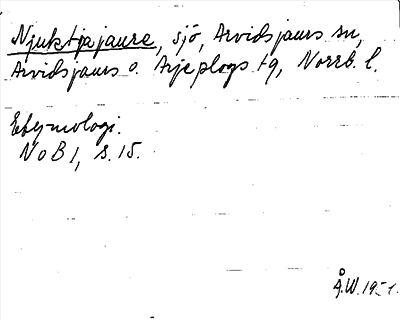 Njuktjajaure, sjö, Arvidsjaurs sn,
Arvidsjaurs o. Arjeplogs tg, Norrb. l.
Etymologi.
NoB 1, s. 15.
Å.W.